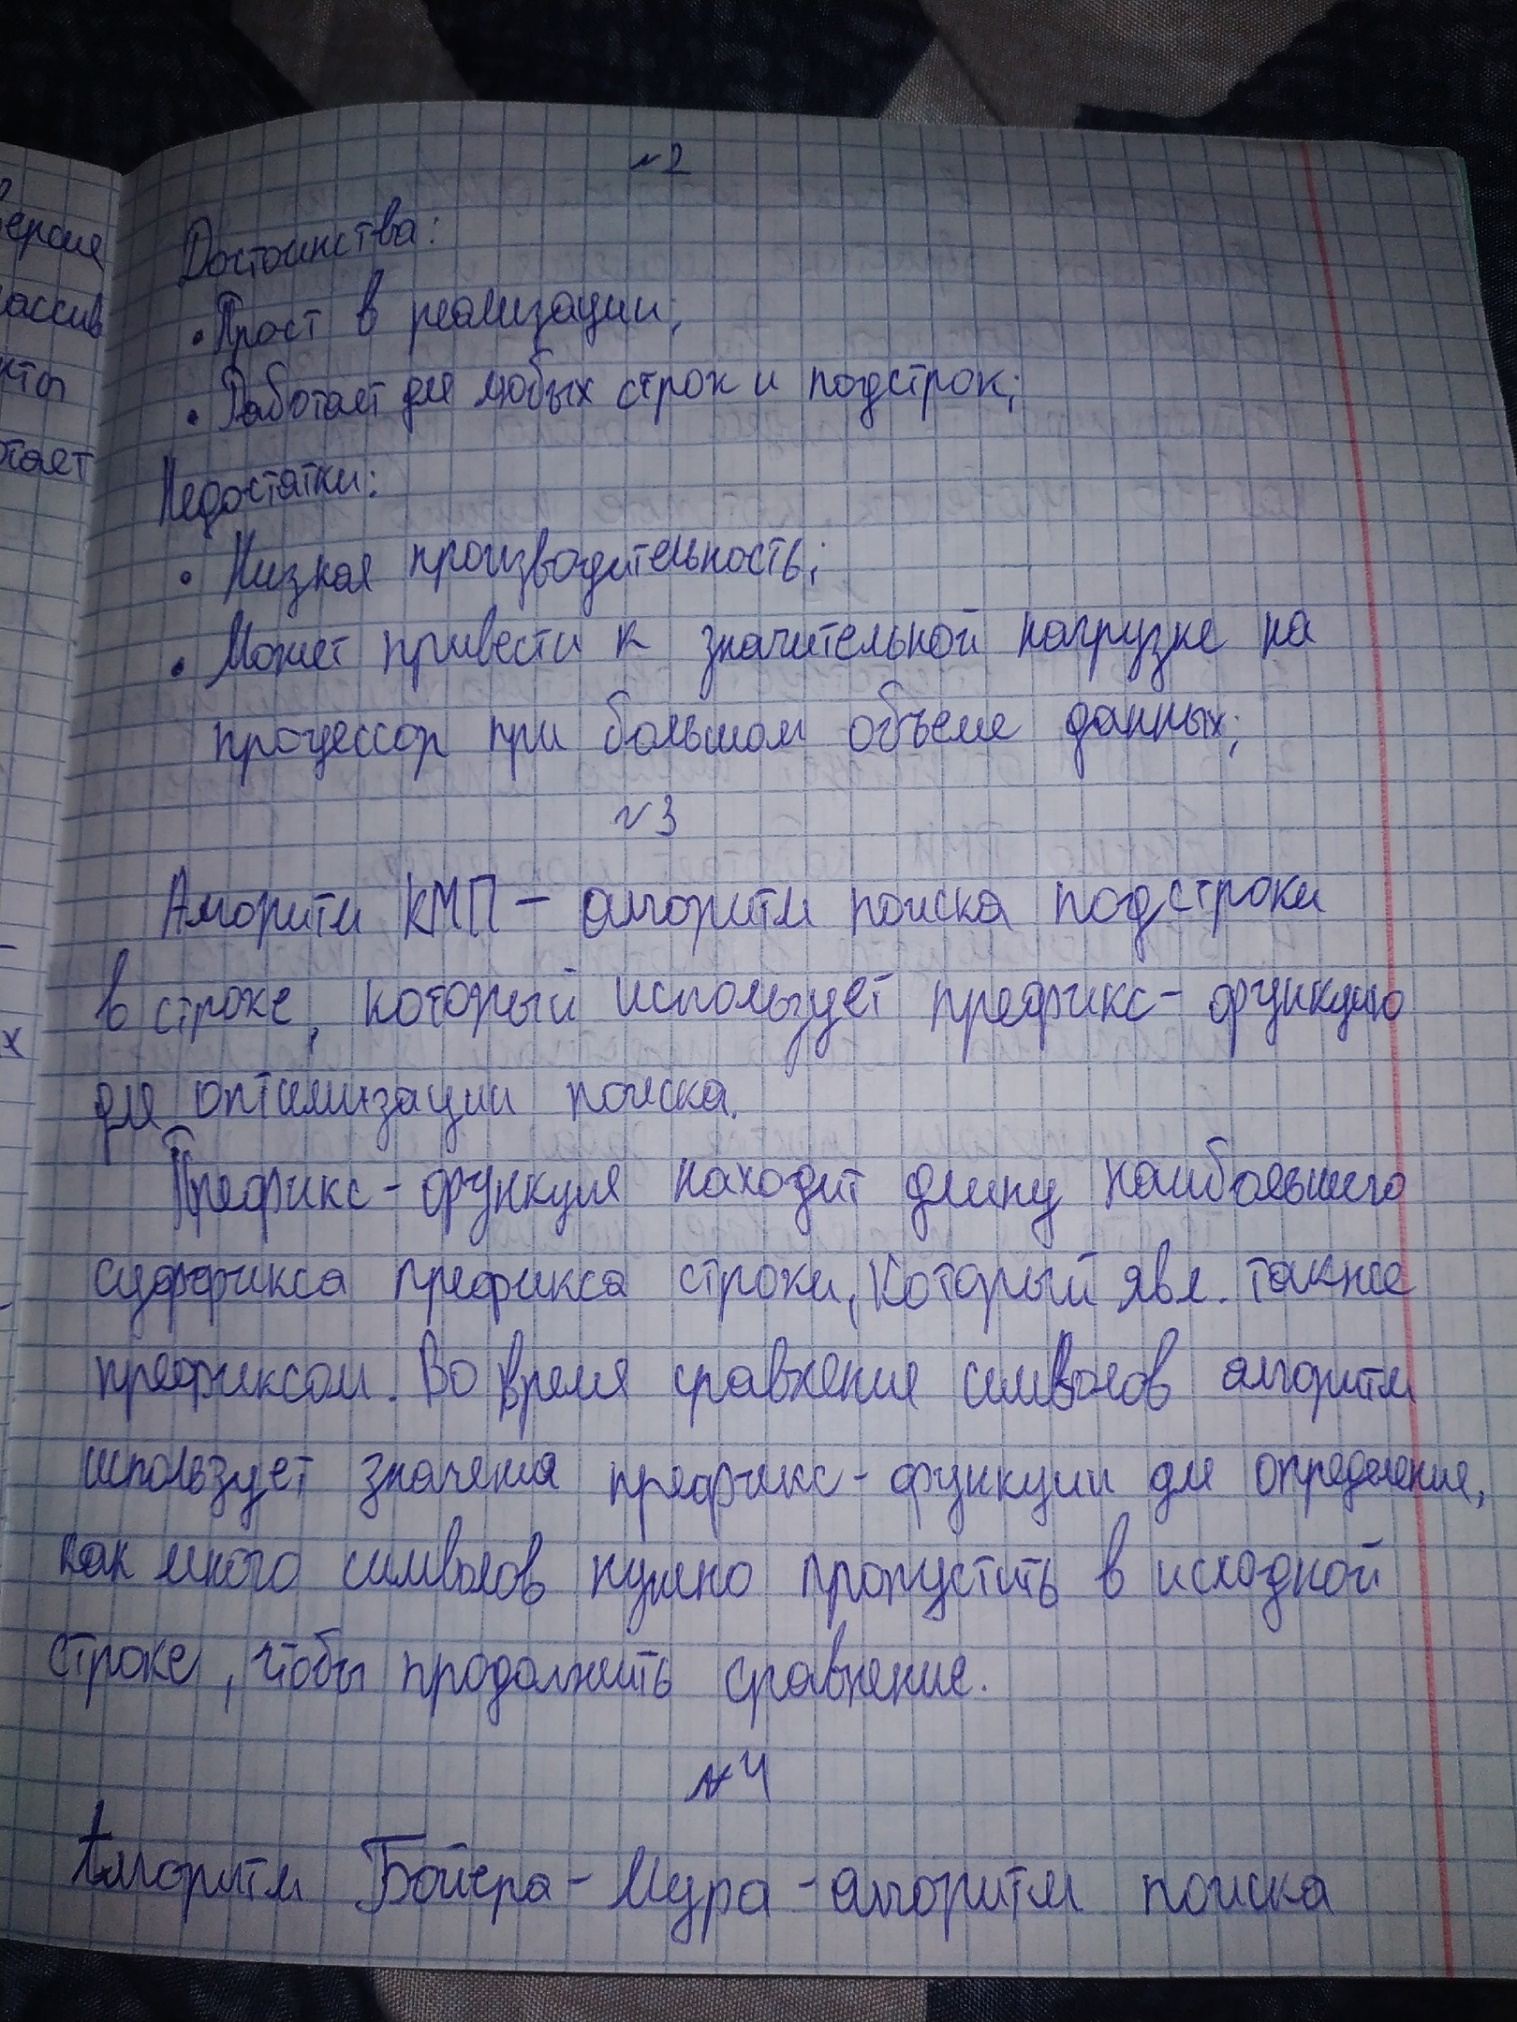 №2
Достоинства:
• Прост в реализации;
• Работает для любых строк и подстрок;
Недостатки:
• Низкая производительность;
• Может привести к значительной нагрузке на
процессор при большом объеме данных;
№3
Алгоритм КМП – алгоритм поиска подстроки
в строке, который использует префикс-функцию
для оптимизации поиска.
Префикс-функция находит длину наибольшего
суффикса префикса строки, который явл. также
префиксом. Во время сравнения символов алгоритм
использует значения префикс-функции для определения,
как много символов нужно пропустить в исходной
строке, чтобы продолжить сравнение.
№4
Алгоритм Бойера-Мура - алгоритм поиска